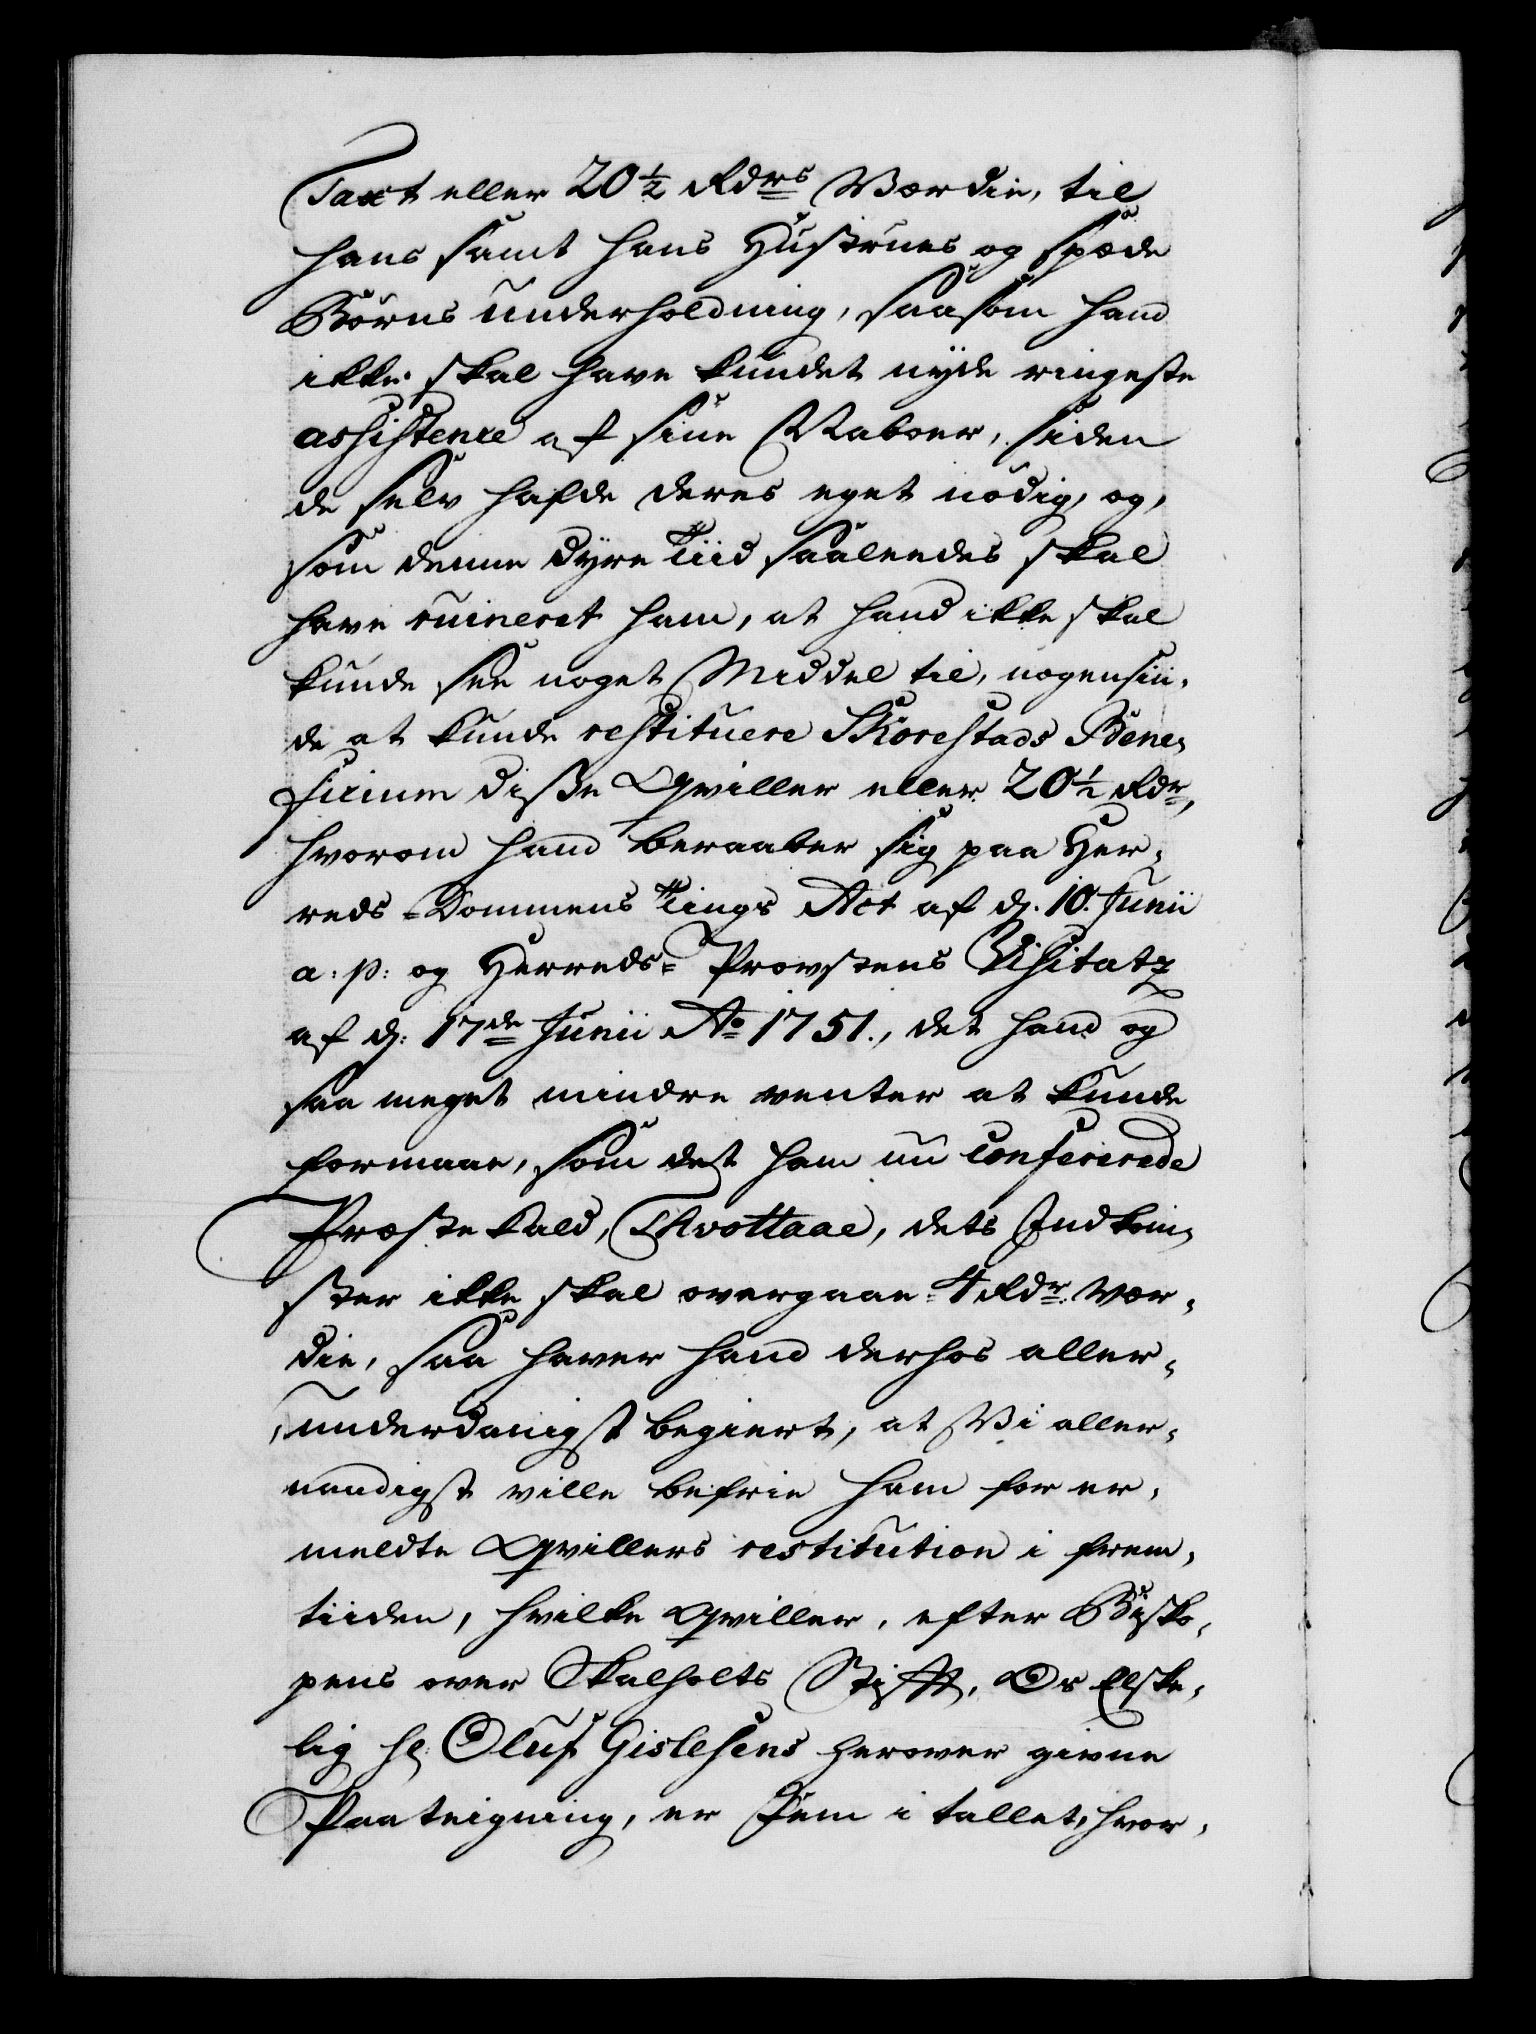 Taxt eller 20½ Rdrs Værdie, til
hans samt hans Hustrues og spæde
Børns underholdning, saasom hand
ikke skal have kundet nyde ringeste
assistence af sine Naboer, siden
de selv hafde deres eget nødig, og,
som denne dyre Tiid saaleedes skal
have ruineret ham, at hand ikke skal
kunde see noget Middel til, nogensin,
de at kunde restituere Skorestads Bene,
ficium diße Qviller eller 20½ Rdr,
hvorom hand beraaber sig paa Her,
reds-Dommens Tings Act af d. 10. Junii
a: p: og Herreds- Provstens Visitatz
af d: 17de Junii Ao 1751., det hand og
saa meget mindre venter at kunde
formaae, som det ham nu confererede
Præste Kald, Thvottaae, dets Indkom,
ster ikke skal overgaae 4 Rdr. Vær,
die, saa haver hand derhos aller,
underdanigst begiert, at Vi aller,
naadigst ville befrie ham for er,
meldte Qvillers restitution i frem,
tiiden, hvilke Qviller, efter Bisko,
pens over Skalholts Stift, Os Elske,
lig Hr: Oluf Gislesens herover givne
Paateigning, er Fem i tallet, hvor,